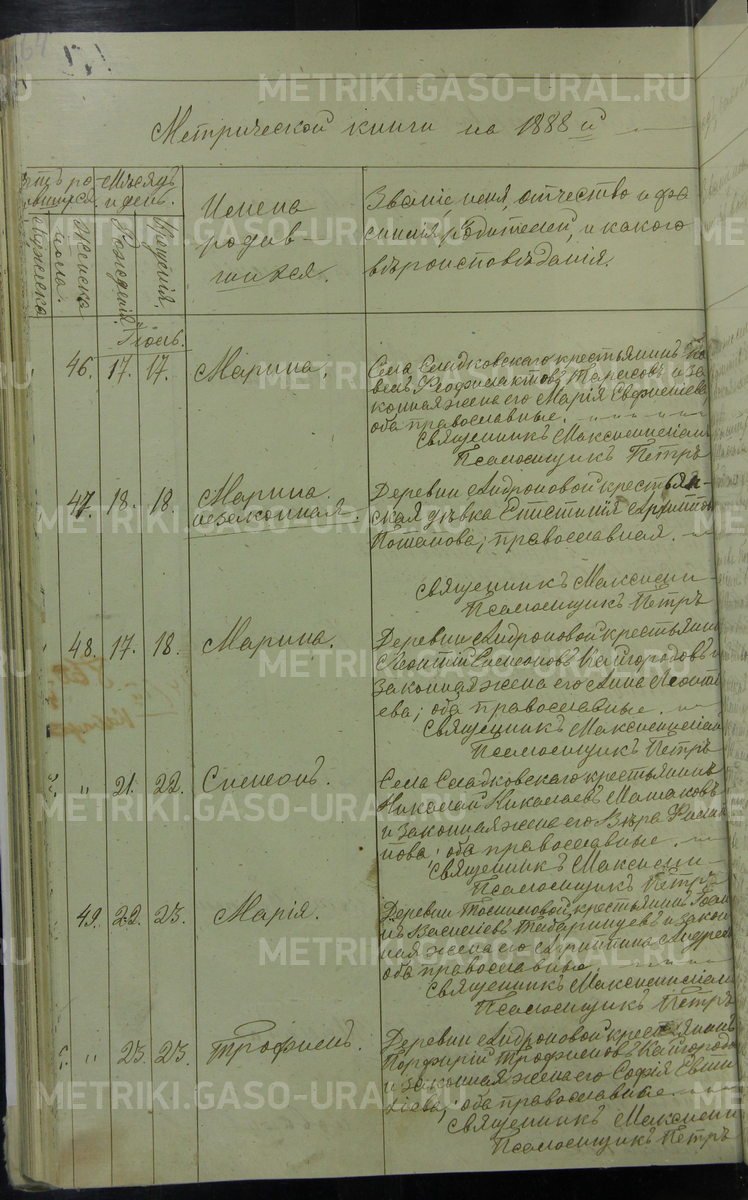 METRIKI.GASO-URAL.RU
Метрической книги на 1888 й
Мѣсяцъ
и день.
Мужеска
Женска
пола.
Рожденія
и
Крещенія.
Имена
родив-
шихся.
Званіе имя, отчество и фа
милія родителей, и какого
вѣроисповѣданія.
Іюль.
46. 17. 17. Марина.
Села Сладковскаго крестьянинъ Па
велъ Феофилактовъ Тарасовъ и за
конная жена его Марія Евфиміева
оба православные.
Священникъ Максимиліан
Псаломщикъ Петръ
47. 18. 18. Марина.
незаконная.
Деревни Андроновой крестьян-
ская дѣвка Епистимія
Потапова; православная.
Священникъ Максими-
Псаломщикъ Петръ
48. 17. 18. Марина.
Деревни Андроновой крестьянин
Леонтій Симеоновъ Кайгородовъ и
законная жена его Анна Леонть
ева; оба православные.
Священникъ Максимиліан
Псаломщикъ Петръ
" 21. 22. Симеонъ.
Села Сладковскаго крестьянинъ
Николай Николаевъ
и законная жена его Вѣра
пова; оба православные.
Священникъ Максими-
Псаломщикъ Петръ
49. 22. 23. Марія.
Деревни крестьянинъ
Василіевъ Табаринцевъ и закон
ная жена его Христина Андрее
оба православные.
Священникъ Максимиліан
Псаломщикъ Петръ
" 23. 23. Трофимъ.
Деревни Андроновой крестьянинъ
Порфирій Трофимовъ Кайгородо
и законная жена его Софія Евти
хіева; оба православные
Священникъ Максими
Псаломщикъ Петръ